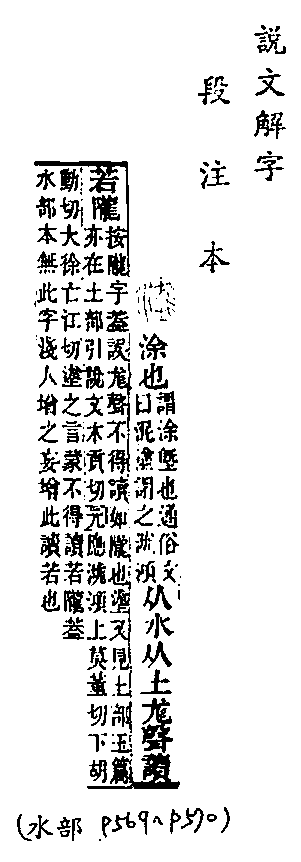 說文解字
段注本
涂也
謂涂墍也通俗文
曰泥塗謂之澒
从水从土尨聲讀
若隴
按隴字蓋誤尨聲不得讀如隴也又見土部玉篇
亦在土部引說文木貢切元應澒上莫董切下胡
動切大徐亡江切之言蒙不得讀若隴蓋
水部本無此字淺人增之妄增此讀若也
(水部 p569~p570)